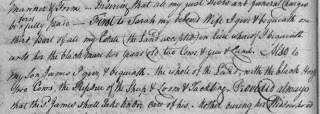 manner & Form. — that my just Debts and funeral Charges
be first
fully paid — First to Sarah my beloved Wife I give & bequeath one
third part of all my Estate the Land excepted in lieu whereof I bequeath
unto her the black mare two years old two Cows & few of Lambs. Also to
my Son James I give & bequeath the whole of the Land, with the black Horse
two Cows, the Residue of the Sheep & Loom & Tackling. Provided always
that the sd James shall take care of his Mother during her Widowhood